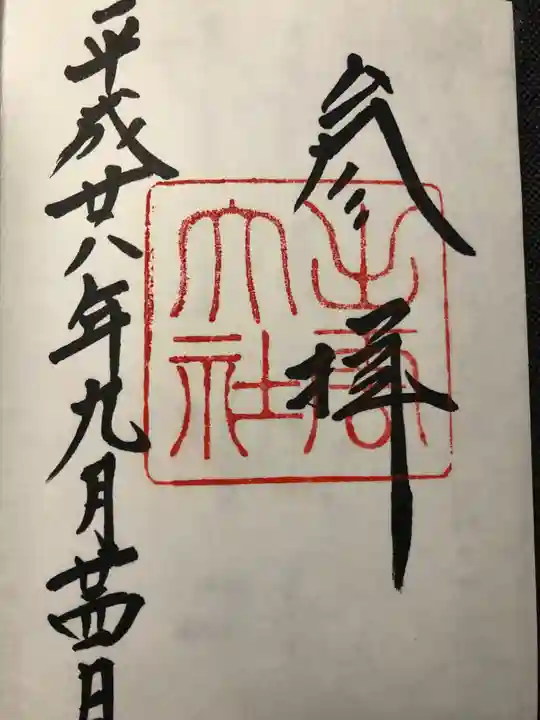 参拝
出雲大社
平成廿八年九月廿四日